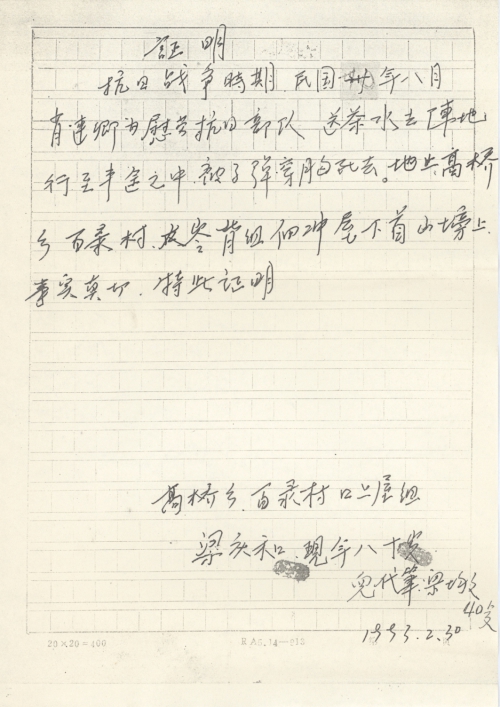 証明
抗日战争時期.民国卅年八月
肖連鄉为慰劳抗日部队 送茶水去陣地
行至半途之中.被子弹穿胸而死去。地点高桥
乡百录村.岑背组 冲屋下首山塝上.
事实真切.特此証明
高桥乡.百录村口上屋组
梁庆和.现年八十岁.
儿代筆.梁
40歲
1993.2.30
20×20=400